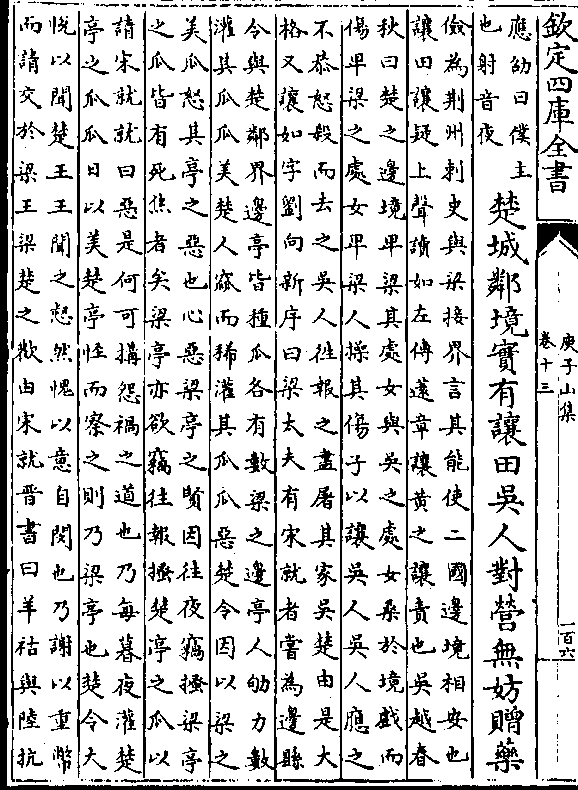 欽定四庫全書
庾子山集
卷十三
一百六
應劭曰僕主
也射音夜
楚城鄰境實有讓田吳人對營無妨贈藥
儉為荆州刺史與梁接界言其能使二國邊境相安也
讓田讓疑上聲讀如左傳薳章讓黄之讓責也吳越春
秋曰楚之邊境卑梁其處女與吳之處女桑於境戲而
傷卑梁之處女卑梁人操其傷子以讓吳人吳人應之
不恭怒殺而去之吳人徃報之盡屠其家吳楚由是大
格又讓如字劉向新序曰梁太夫有宋就者嘗為邊縣
令與楚鄰界邊亭皆種瓜各有數梁之邊亭人劬力數
灌其瓜瓜美楚人窳而稀灌其瓜瓜惡楚令因以梁之
美瓜怒其亭之惡也心惡梁亭之賢因徃夜竊搔梁亭
之瓜皆有死焦者矣梁亭亦欲竊徃報搔楚亭之瓜以
請宋就就曰惡是何可搆怨禍之道也乃每暮夜灌楚
亭之瓜瓜日以美楚亭怪而察之則乃梁亭也楚令大
恱以聞楚王王聞之惄然愧以意自閔也乃謝以重幣
而請交於梁王梁楚之歡由宋就晉書曰羊祜與陸抗